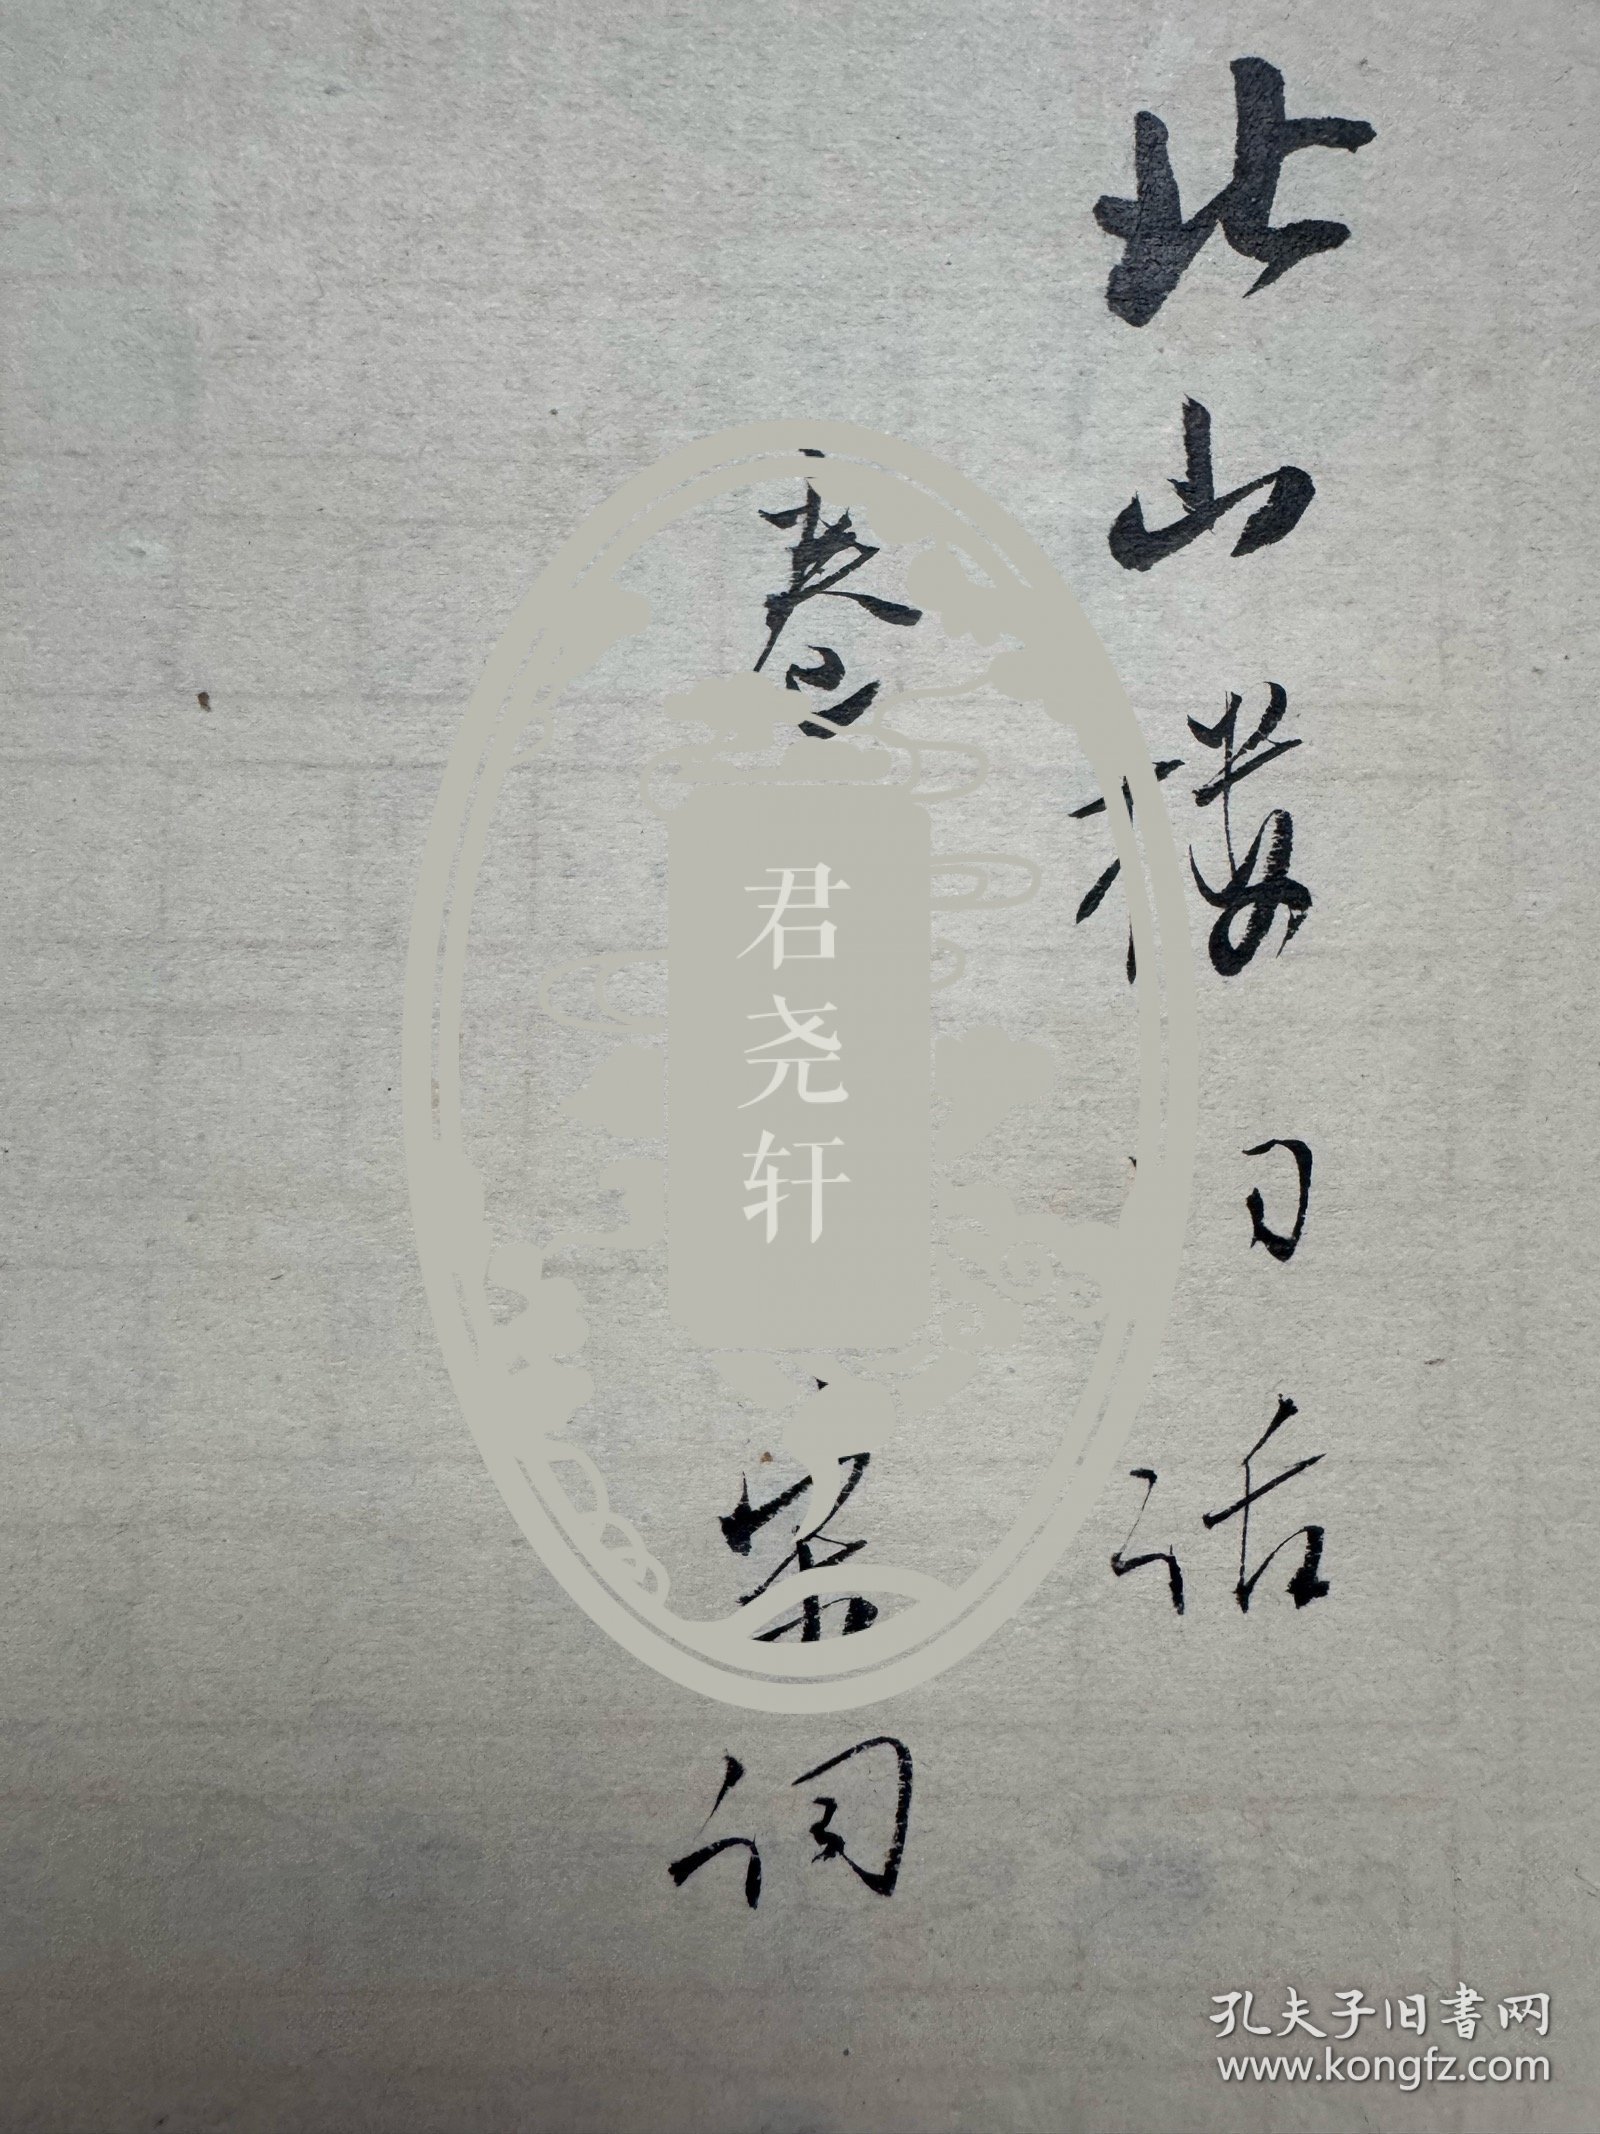 北山楼词话
卷 宋词
君尧轩
孔夫子旧书网
www.kongfz.com